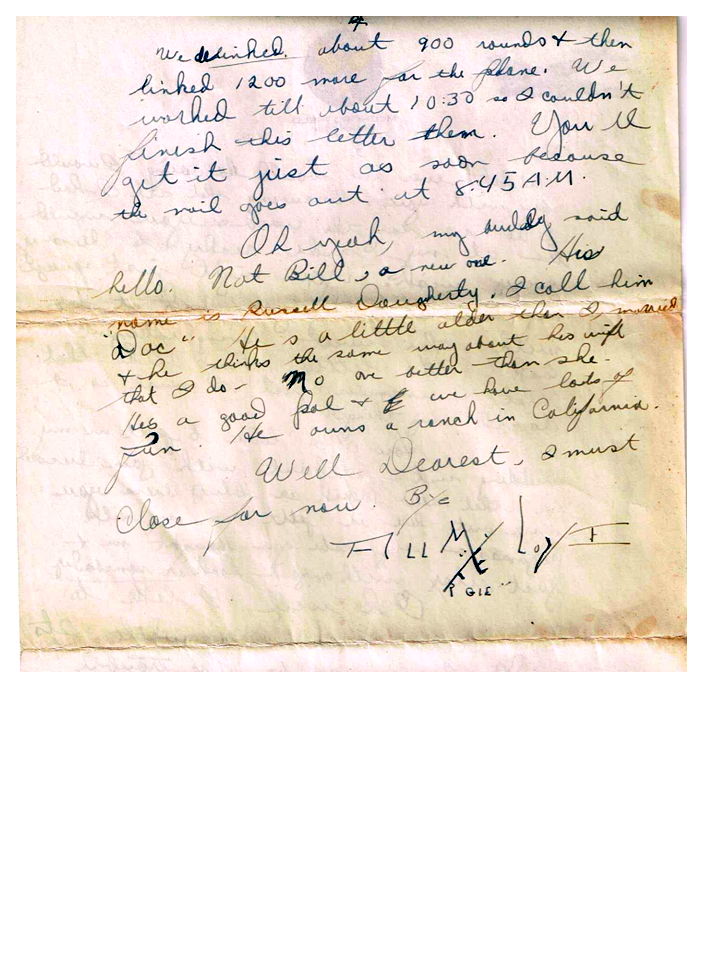 4
We delinked about 900 rounds & then
linked 1200 more for the plane. We
worked till about 10:30 so I couldn't
finish this letter them. You'll
get it just as soon because
the mail goes out at 8:45 A.M.
Oh yeah, my buddy said
hello. Not Bill, a new one. His
name is Russell Dougherty. I call him
"Doc" He's a little older then I, married
& he thinks the same way about his wife
that I do - No one better than she.
Hes a good pal & we have lots of
fun. He owns a ranch in California.
Well Dearest, I must
close for now. Bye
All My Lov